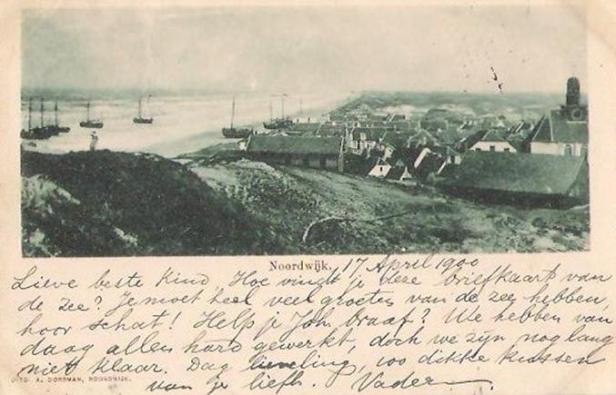 Noordwijk. 17 April 1900
Lieve beste Kind, Hoe vindt je deze briefkaart van
de zee? Je moet heel veel groeten van de zee hebben
hoor schat! Help je Joh. braaf? We hebben van
daag allen hard gewerkt, doch we zijn nog lang
niet klaar. Dag lieveling, 100 dikke kussen
van je liefh. Vader
UITG. A. DORSMAN, NOORDWIJK.